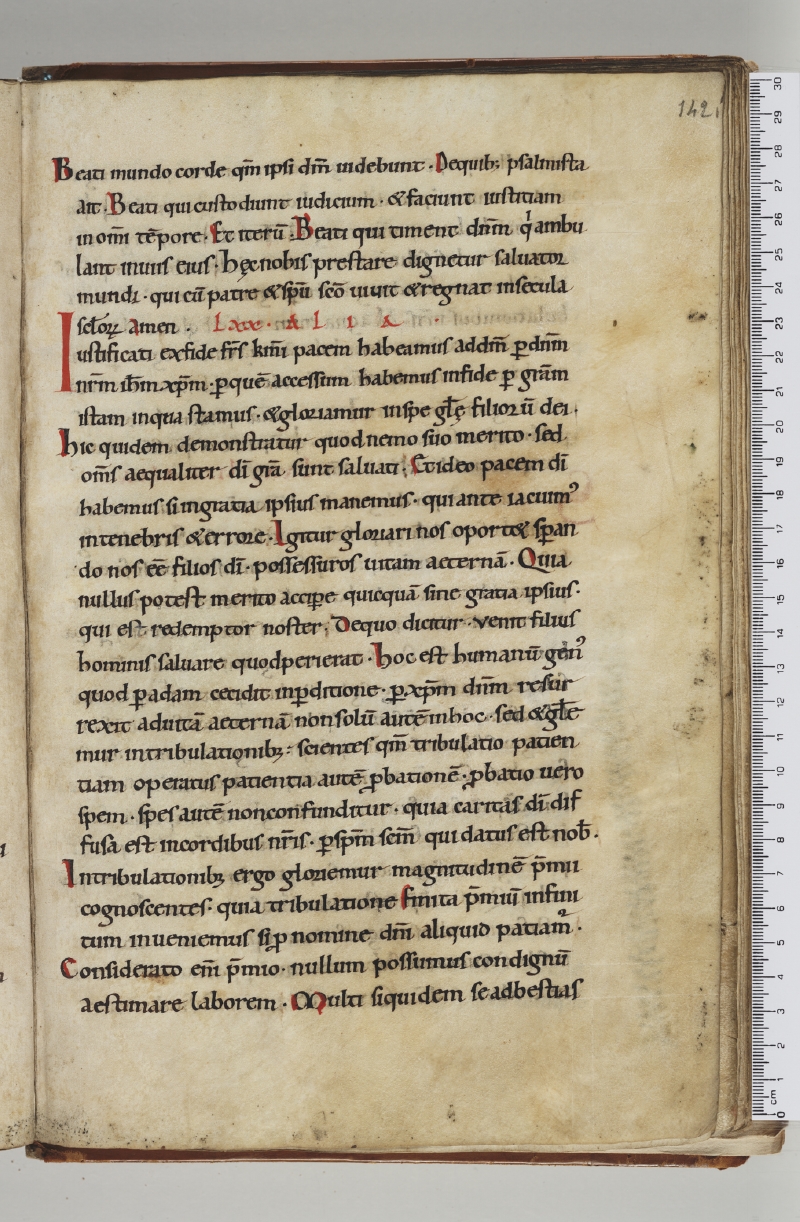 142
Beati mundo corde qm̄ ipsi dm̄ uidebunt · Dequib; psalmista
ait · Beati qui custodiunt iudicium · &faciunt iustitiam
in omī tēpore · Et iterū · Beati qui timent dn̄m q̓ ambu
lant inuiis eius · Hęc nobis prestare dignetur saluator
mundi · qui cū patre &sp̄u sc̄o uiuit &regnat insecula
sc̄lorꝝ Amen · Lxxx · A L I A ·
Iustificati exfide fr̄s km̄i pacem habeamus addm̄ ꝑdn̄m
nr̄m ih̄m xp̄m · ꝑquē accessum habemus infide ꝑ gr̄am
istam inqua stamus · &gloriamur inspe gl̄ę filiorū dei ·
Hic quidem demonstratur quod nemo suo merito · sed
om̄s aequaliter dī gr̄a sunt saluati · Et ideo pacem dī
habemus si ingratia ipsius manemus · qui ante iacuimꝰ
intenebris &errore · Igitur gloriari nos oport& sꝑan
do nos eē̄ filios dī · possessuros uitam aeternā · Quia
nullus potest merito acciꝑe quicquā sine gratia ipsius ·
qui est redemptor noster · Dequo dicitur · venit filius
hominis saluare quodperierat · Hoc est humanū genꝰ
quod ꝑadam cecidit inꝑditione · ꝑxp̄m dn̄m resur
rexit aduitā aeternā nonsolū autē inhoc · sed &gl̄e
mur intribulationib; · scientes qm̄ tribulatio patien
tiam operatus patientia autē ꝓbationē · ꝓbatio uero
spem · spes autē nonconfunditur · quia caritas dī dif
fusa est incordibus nr̄is · ꝑsp̄m sc̄m qui datus est nob̄ ·
Intribulationib; ergo gloriemur magnitudinē p̄mii
cognoscentes · quia tribulatione finita p̄miū infini
tum inueniemus si ꝓ nomine dn̄i aliquid patiamᷣ ·
Considerato em̄ p̄mio · nullum possumus condignū
aestimare laborem · Multi siquidem seadbestias